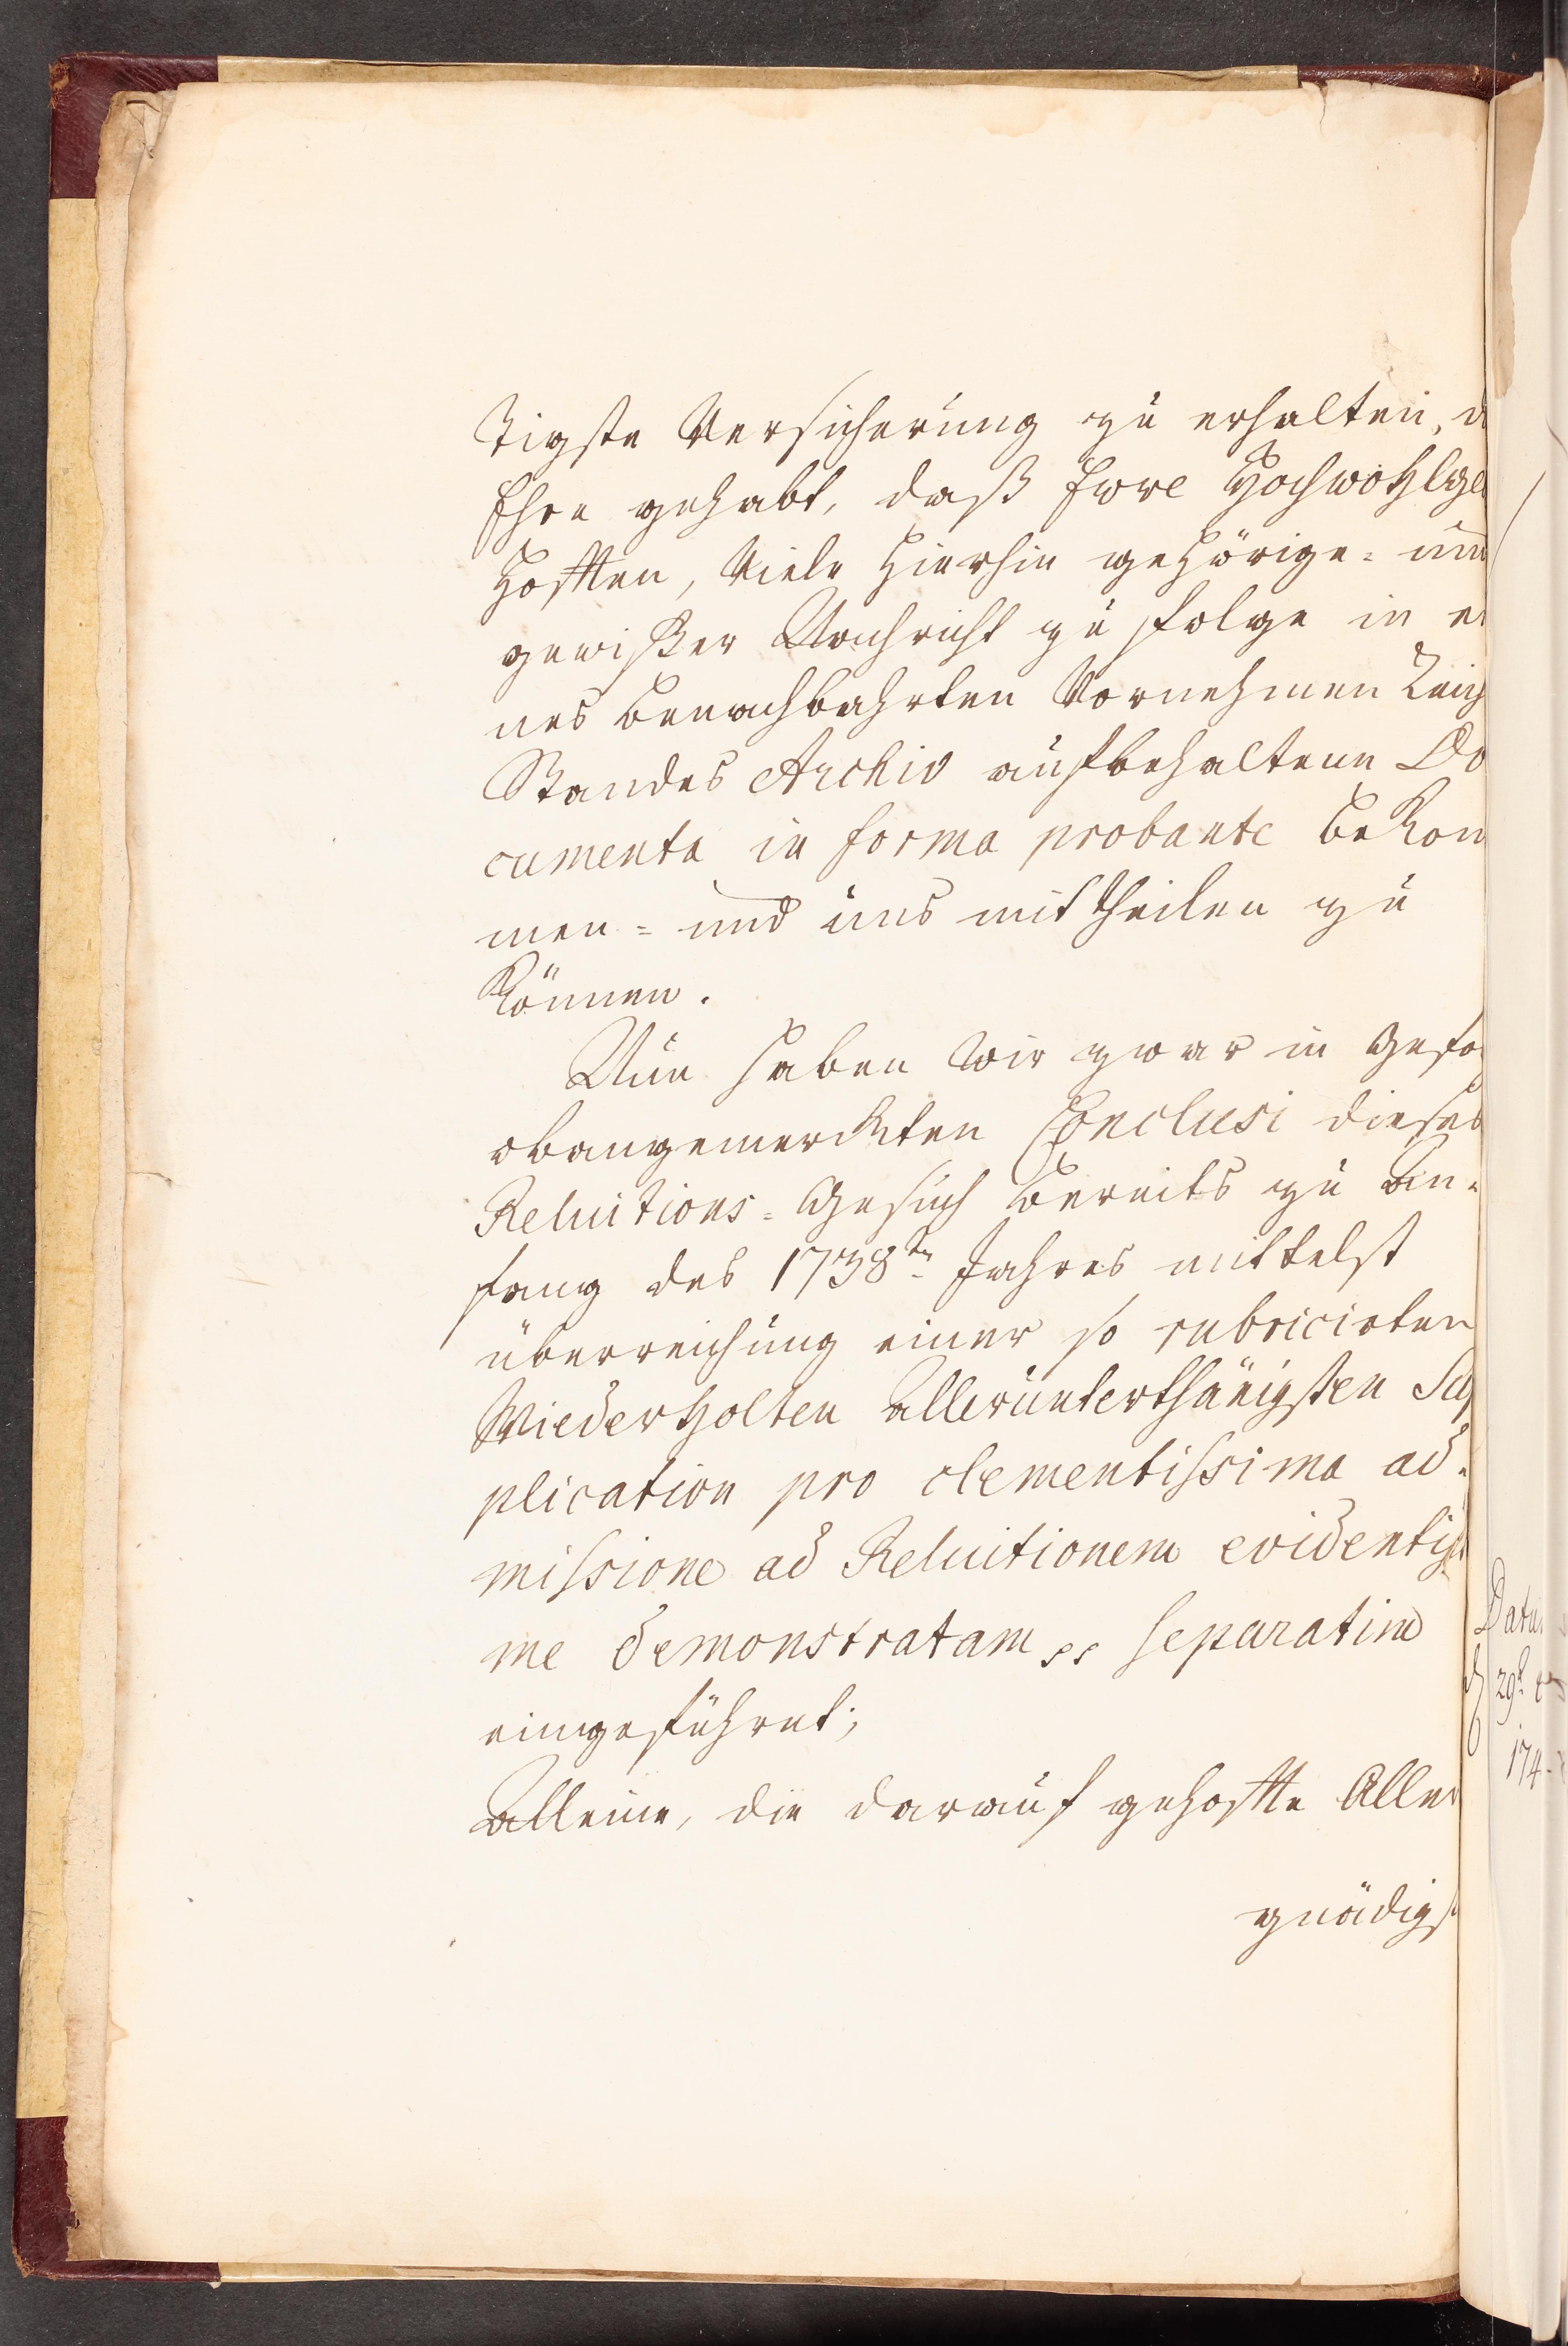 tigste Versicherung zu erhalten, d
Ehre gehabt, daß Ewre Hochwohlge
hofften, Viele hierhin gehörige- und
gewißer Nachricht zu folge in ei
nes benachbahrten Vornehmen Reich
Standes Archiv aufbehaltene Do
cumenta in forma probante bekom
men- und uns mittheilen zu
Können.
Nun haben Wir zwar in Gefo
obangemerckten Conclusi dieses
Reluitions-Gesuch bereits zu An-
fang des 1738ten Jahres mittelst
überreichung einer so rubricirten
Wiederholten allerunterthänigsten Sup
plication pro clementissima ad-
missione ad Reluitionem evidentiss
me demonstratam separatim
eingeführet;
Alleine, die darauf gehoffte Aller
gnädigst
Datu
29
174